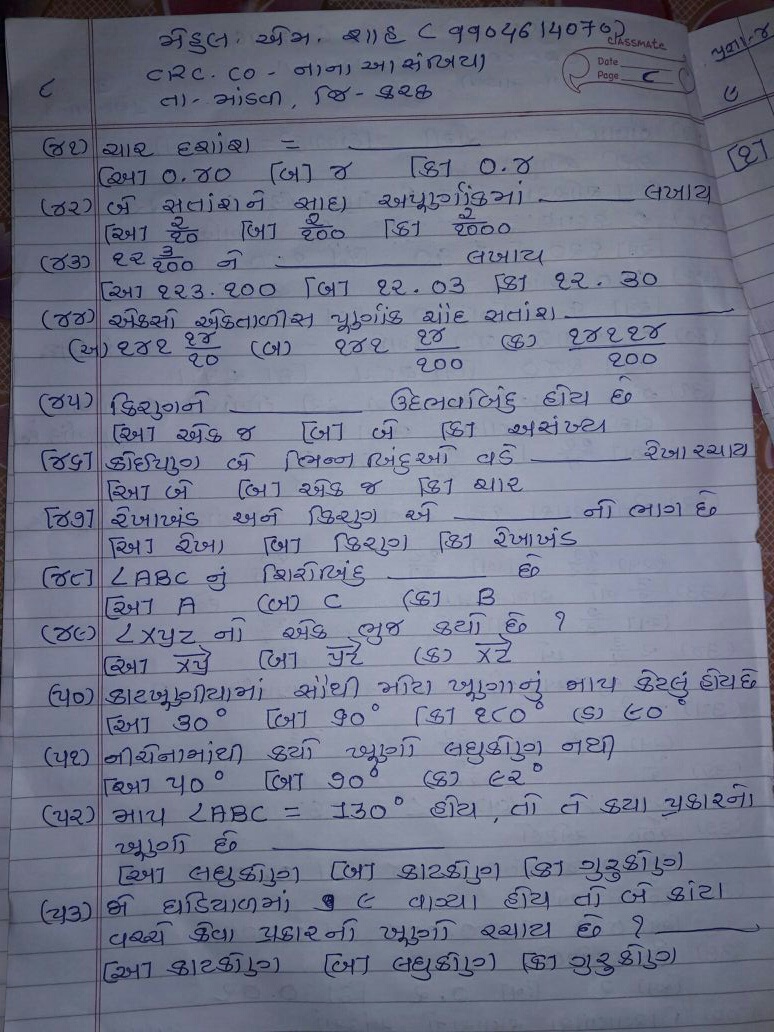 મેહુલ. એમ. શાહ ( ૧૧૦૫૬૧૪૦૭૦)
classmate
Date
Page ૮
૮
CRC. CO - નાના આસંબિયા
તા - માંડવી, જિ - કચ્છ
(૪૧) ચાર દશાંશ = ________
[અ] 0.૪0 [બ] ૪ [ક] 0.૪
(૪૨) બે સતાંશને સાદા અપૂર્ણાંકમાં ________ લખાય
[અ] ૨/૧0 [બ] ૨/૧00 [ક] ૨/૧000
(૪૩) ૧૨ ૩/૧00 ને ________ લખાય
[અ] ૧૨૩.૧00 [બ] ૧૨.0૩ [ક] ૧૨.૩0
(૪૪) એકસો એકતાળીસ પૂર્ણાંક ચૌદ સતાંશ ________
(અ) ૧૪૧ ૧૪/૧0 (બ) ૧૪૧ ૧૪/૧00 (ક) ૧૪૧૧૪/૧00
(૪૫) કિરણને ________ ઉદભવબિંદુ હોય છે
[અ] એક જ [બ] બે [ક] અસંખ્ય
[૪૬) કોઈપણ બે ભિન્ન બિંદુઓ વડે ________ રેખા રચાય
[અ] બે [બ] એક જ [ક] ચાર
[૪૭) રેખાખંડ અને કિરણ એ ________ નો ભાગ છે
[અ] રેખા [બ] કિરણ [ક] રેખાખંડ
(૪૮] ∠ABC નું શિરોબિંદુ ________ છે
[અ] A (બ) C (ક] B
(૪૯) ∠XYZ નો એક ભુજ કયો છે ?
[અ] XY [બ] YZ (ક) XZ
(૫૦) કાટખૂણીયામાં સૌથી મોટા ખૂણાનું માપ કેટલું હોય છે
[અ] ૩0° [બ] ૭0° [ક] ૧૮0° (ડ) ૯0°
(૫૧) નીચેનામાંથી કયો ખૂણો લઘુકોણ નથી
[અ] ૫0° [બ] ૭0° (ક) ૯૨°
(૫૨) માપ ∠ABC = 130° હોય, તો તે કયા પ્રકારનો
ખૂણો છે ________
[અ] લઘુકોણ [બ] કાટકોણ [ક] ગુરુકોણ
(૫૩) જો ઘડિયાળમાં ૯ વાગ્યા હોય તો બે કાંટા
વચ્ચે કેવા પ્રકારનો ખૂણો રચાય છે ? ________
[અ] કાટકોણ [બ] લઘુકોણ [ક] ગુરુકોણ
પ્રશ્ન-૪
[૧]